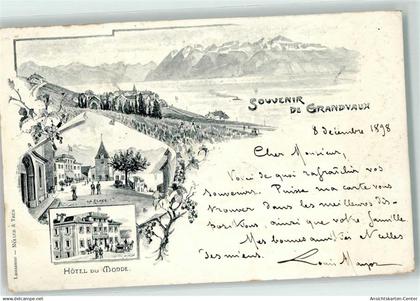 SOUVENIR
DE GRANDVAUX
8 décembre 1898
Cher Monsieur,
Voici de quoi rafraîchir vos
souvenirs. Puisse ma carte vous
trouver dans les meilleures dis-
positions, ainsi que votre famille
Mes bonnes amitiés et celles
des miens.
Louis
LA PLACE
HÔTEL DU MONDE.
Lausanne —
© Ansichtskarten-Center.de